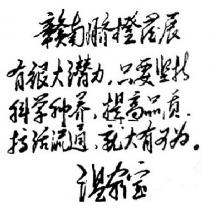 赣南脐橙发展
有很大潜力,只要坚持
科学种养,提高品质,
搞活流通,就大有可为。
温家宝